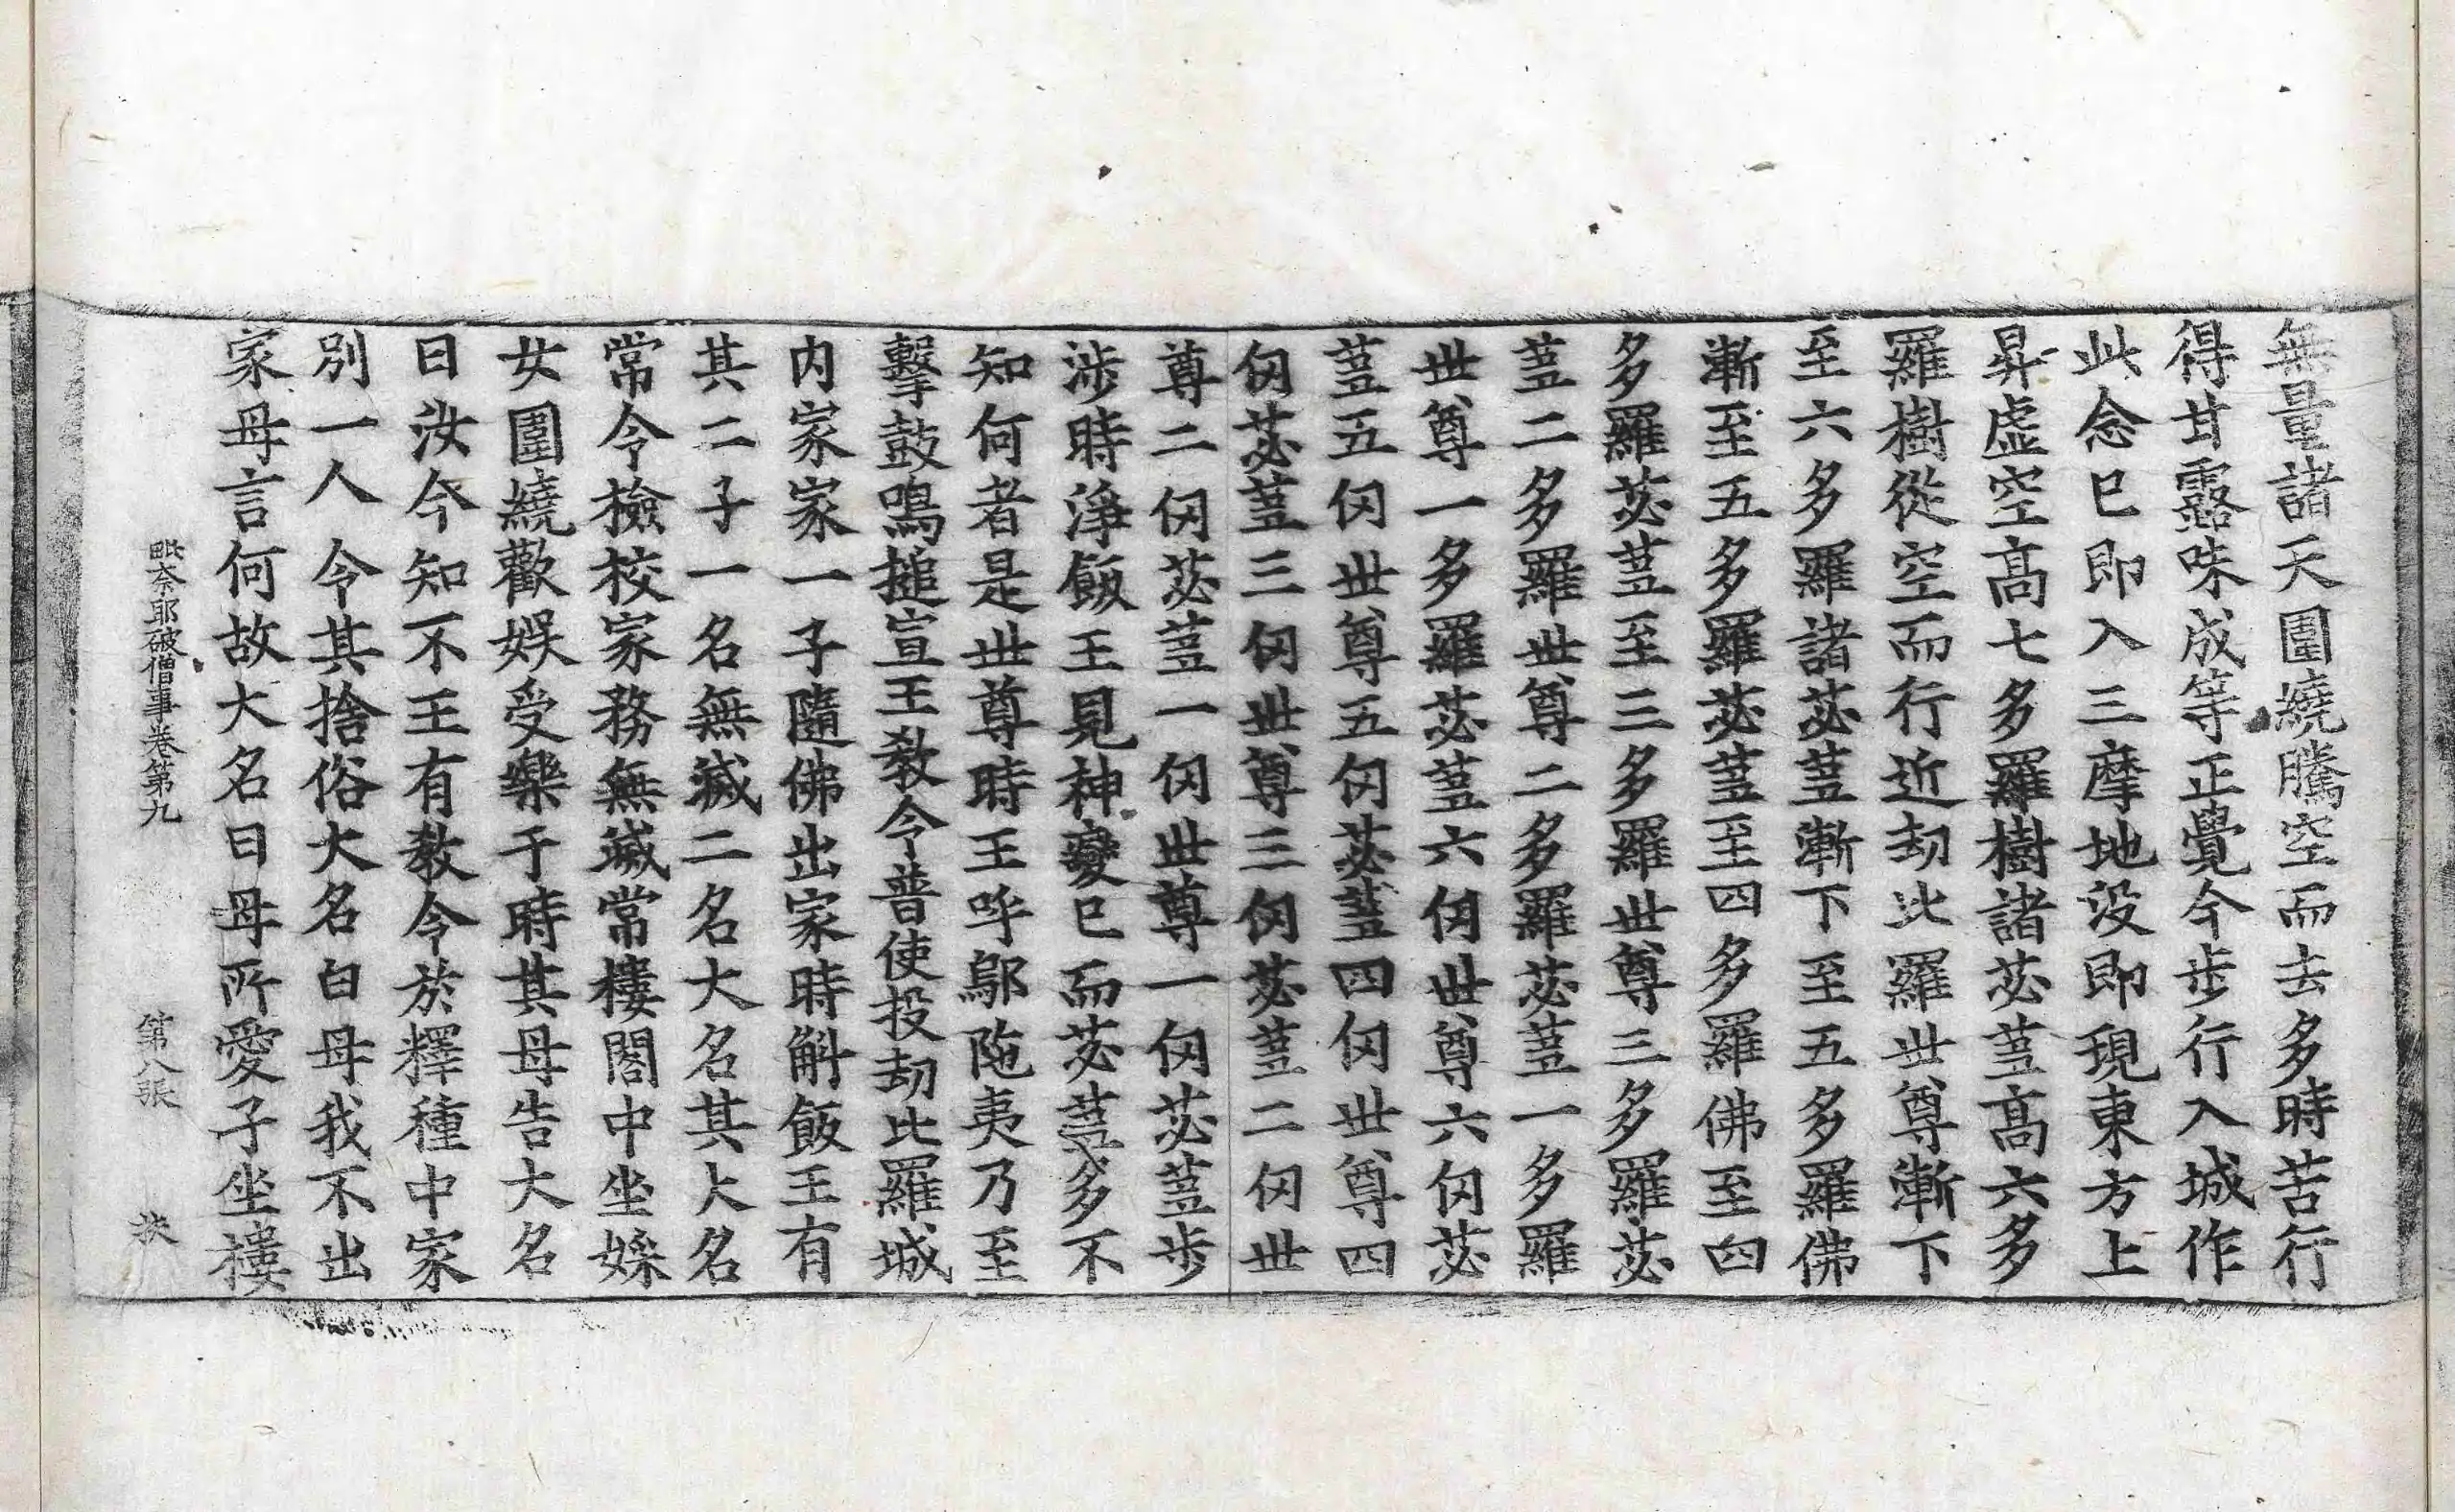 無量諸天圍繞騰空而去多時苦行
得甘露味成等正覺今步行入城作
此念已即入三摩地没即現東方上
昇虛空高七多羅樹諸苾蒭高六多
羅樹從空而行近劫比羅世尊漸下
至六多羅諸苾蒭漸下至五多羅佛
漸至五多羅苾蒭至四多羅佛至四
多羅苾蒭至三多羅世尊三多羅苾
蒭二多羅世尊二多羅苾蒭一多羅
世尊一多羅苾蒭六仞世尊六仞苾
蒭五仞世尊五仞苾蒭四仞世尊四
仞苾蒭三仞世尊三仞苾蒭二仞世
尊二仞苾蒭一仞世尊一仞苾蒭步
涉時淨飯王見神變已而苾蒭多不
知何者是世尊時王呼鄔陁夷乃至
擊鼓鳴搥宣王教令普使投劫比羅城
内家家一子隨佛出家時斛飯王有
其二子一名無滅二名大名其大名
常令檢校家務無滅常樓閣中坐婇
女圍繞歡娛受樂于時其母告大名
曰汝今知不王有教令於釋種中家
別一人令其捨俗大名白母我不出
家母言何故大名曰母所愛子坐樓
毗奈耶破僧事卷第九 第八張 枝